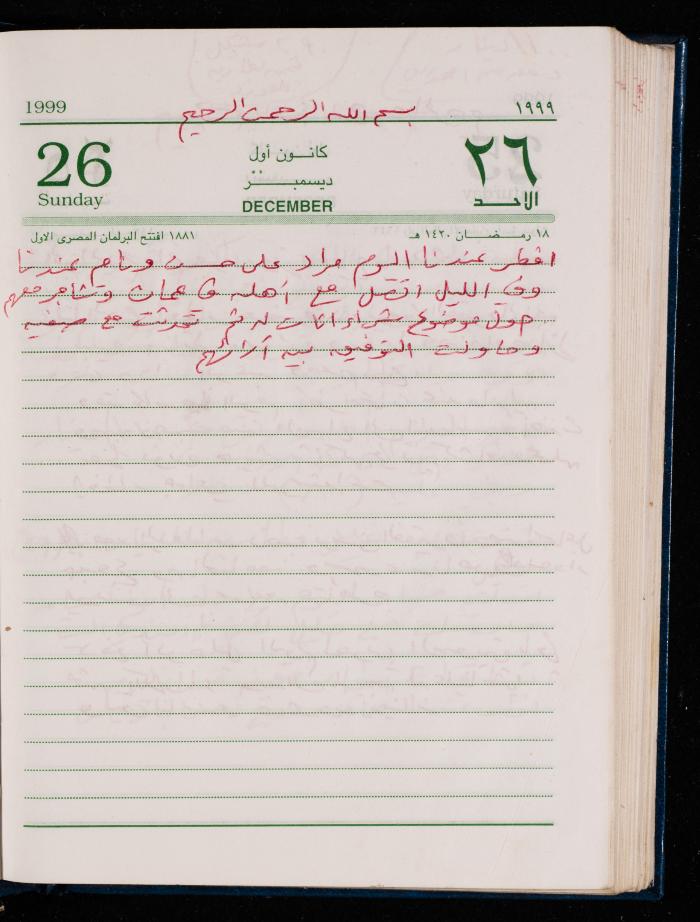 1999
بسم الله الرحمن الرحيم
١٩٩٩
26
Sunday
كانــون أول
ديسمبــــر
DECEMBER
٢٦
الأحــد
١٨ رمـضــــان ١٤٢٠ هـ
١٨٨١ افتتح البرلمان المصرى الاول
افطر عندنا اليوم مراد على حسن ونام عندنا
وفي الليل اتصل مع أهله في عمان وتشاجر معهم
حول موضوع شراء اثاث له ثم تحدثت مع صفيه
وحاولت التوفيق بين آرائهم